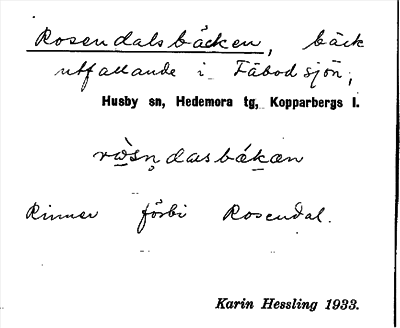 Rosendalsbäcken, bäck
utfallande i Fäbodsjön,
Husby sn, Hedemora tg, Kopparbergs l.
Rinner förbi Rosendal.
Karin Hessling 1933.